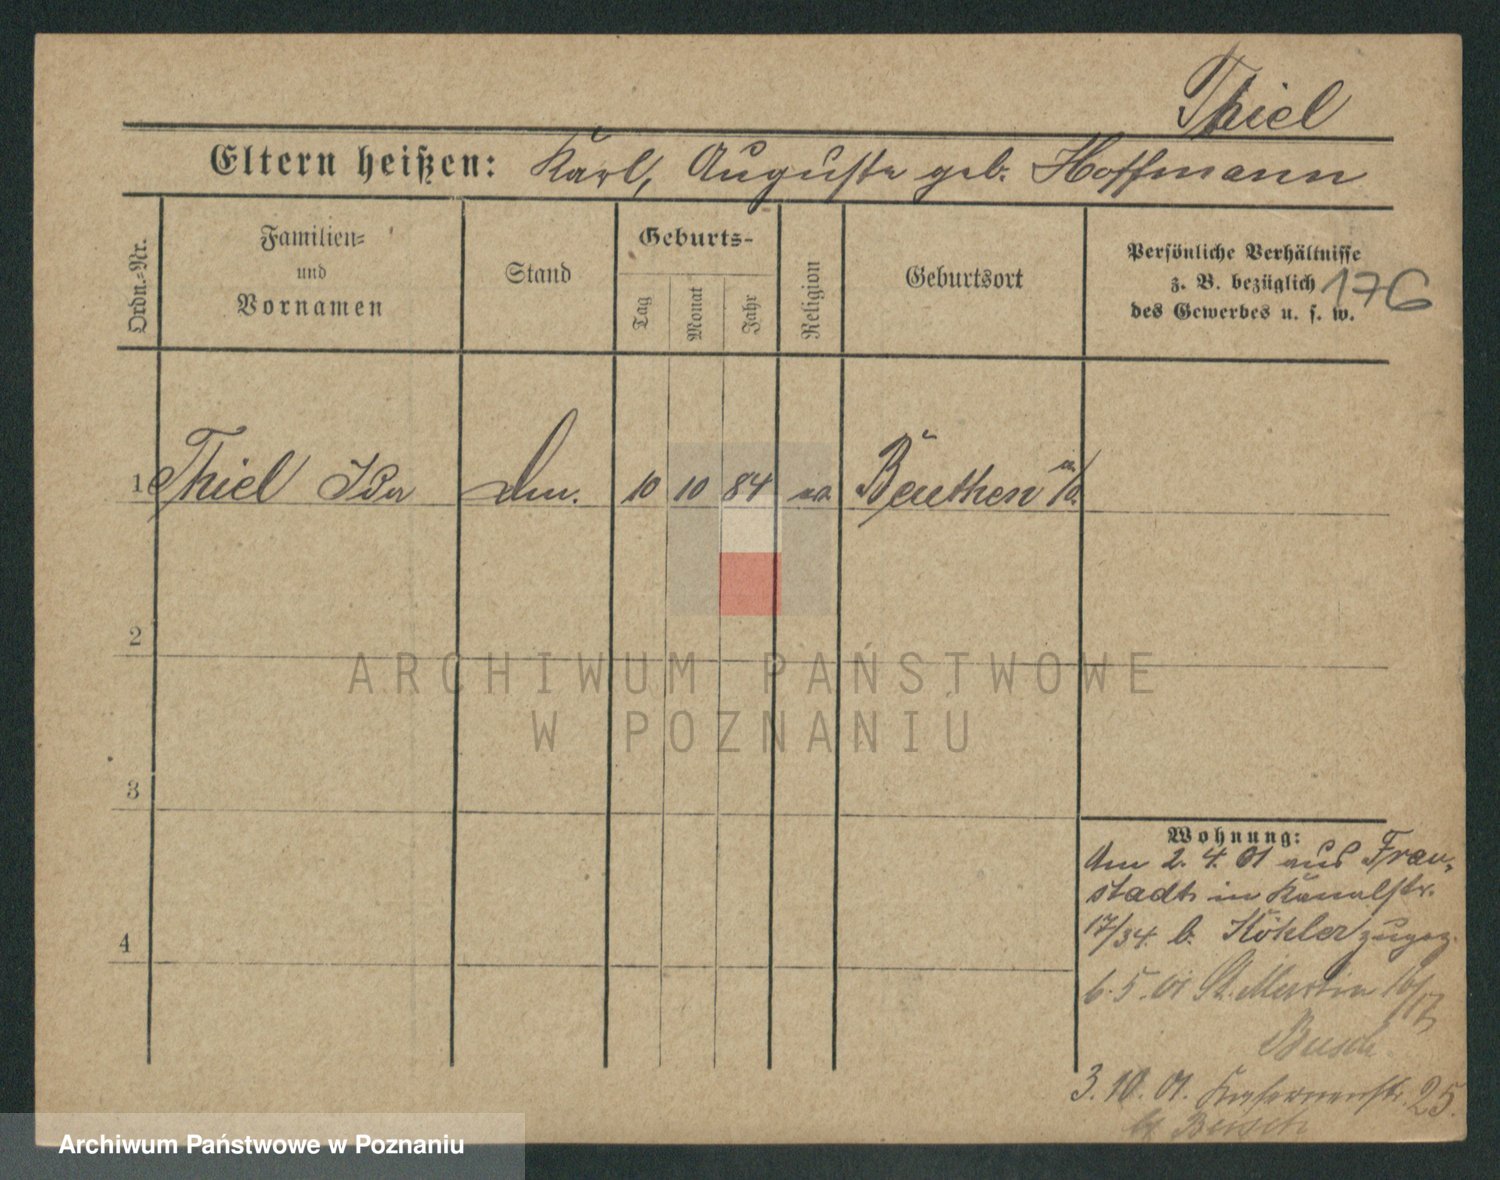 Thiel
Eltern heißen: Karl, Auguste geb. Hoffmann
Ordn.=Nr.
Familien=
und
Vornamen
Stand
Geburts-
Tag
Monat
Jahr
Religion
Geburtsort
Persönliche Verhältnisse
z. B. bezüglich
des Gewerbes u. s. w.
176
1 Thiel Ida 10 10 84 Beuthen a/O.
2
ARCHIWUM PAŃSTWOWE
W POZNANIU
3
Wohnung:
Am 2. 4. 01 aus Frau-
stadt in Kanalstr.
17/34 b. Köhler zugez.
4
6. 5. 01 St. Martin 16/17
Busch
3. 10. 01. Kasernenstr. 25.
Busch
Archiwum Państwowe w Poznaniu